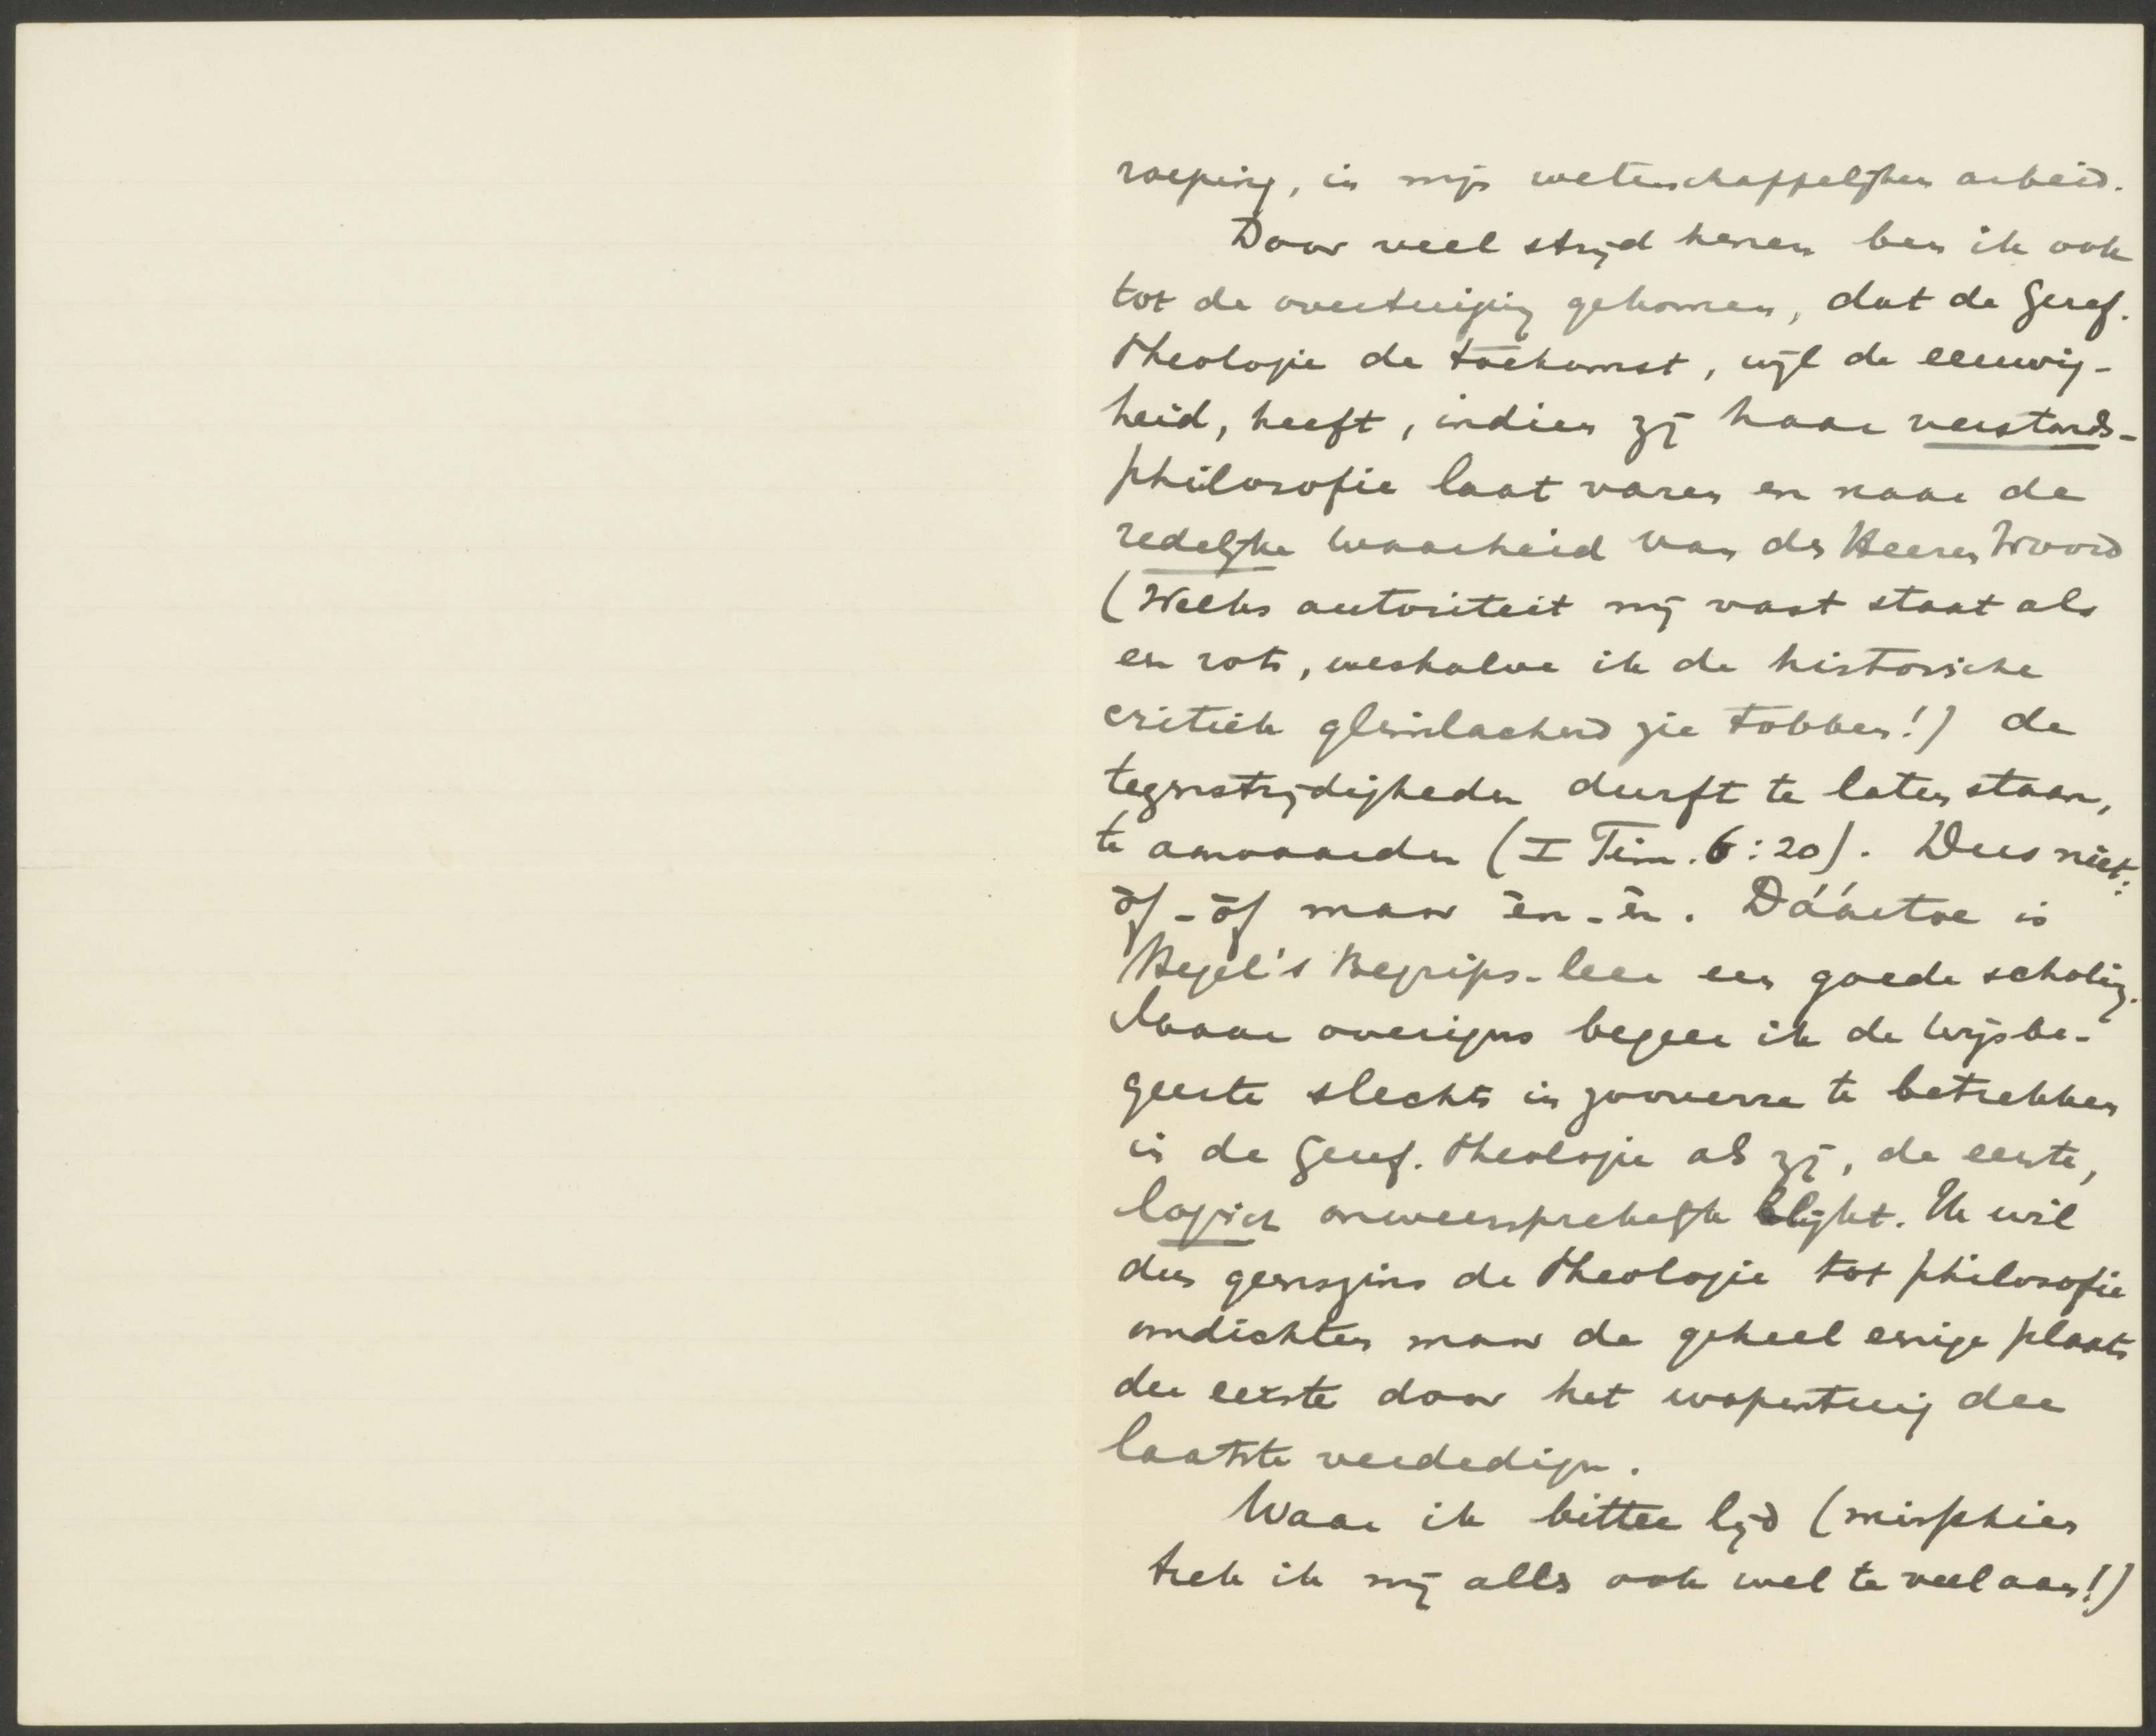 roeping, in mijn wetenschappelijken arbeid.
Door veel strijd henen ben ik ook
tot de overtuiging gekomen, dat de Geref.
Theologie de toekomst, wijl de eeuwig-
heid, heeft, indien zij haar verstands-
philosofie laat varen en naar de
redelijke waarheid van des Heeren Woord
(Welks autoriteit mij vast staat als
een rots, weshalve ik de historische
critiek glimlachend zie tobben!) de
tegenstrijdigheden durft te laten staan,
te aanvaarden (I Tim. 6:20). Dus niet:
òf-òf maar èn-èn. Dáártoe is
Hegel's Begrips-leer een goede scholing.
Maar overigens begeer ik de wijsbe-
geerte slechts in zooverre te betrekken
in de Geref. Theologie als zij, de eerste,
logisch onweersprekelijk blijkt. Ik wil
dus geenszins de Theologie tot philosofie
omdichten maar de geheel eenige plaats
der eerste door het wapentuig der
laatste verdedigen.
Waar ik bitter lijd (misschien
trek ik mij alles ook wel te veel aan!)